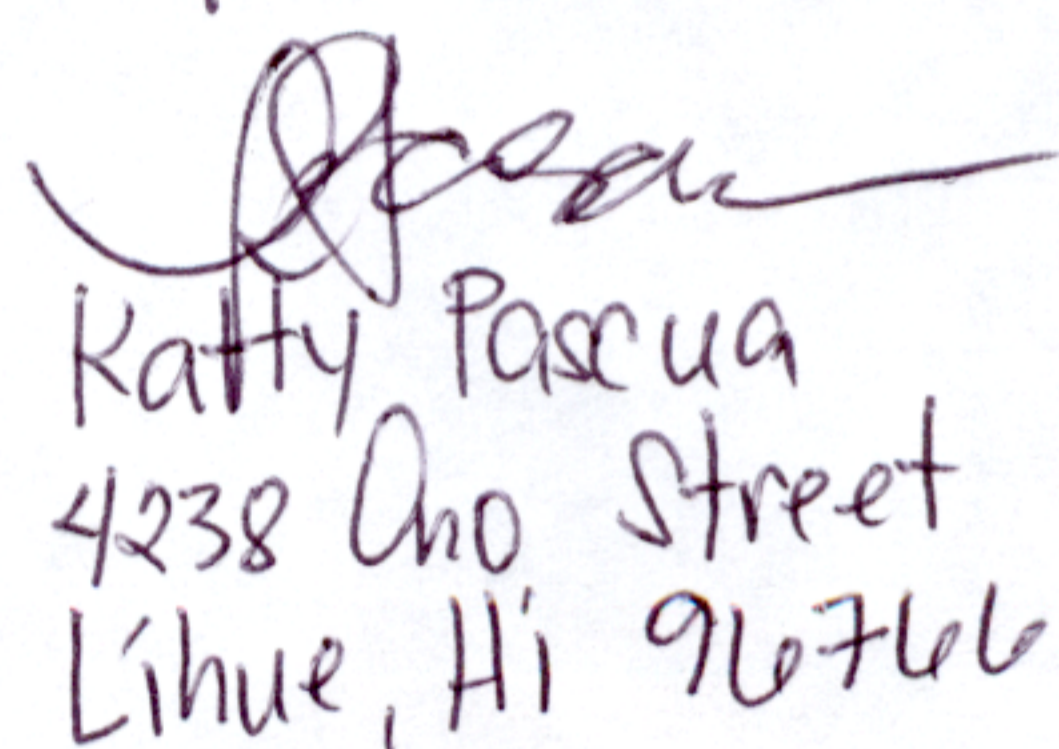 Katty Pascua
4238 Ono Street
Lihue, Hi 96766